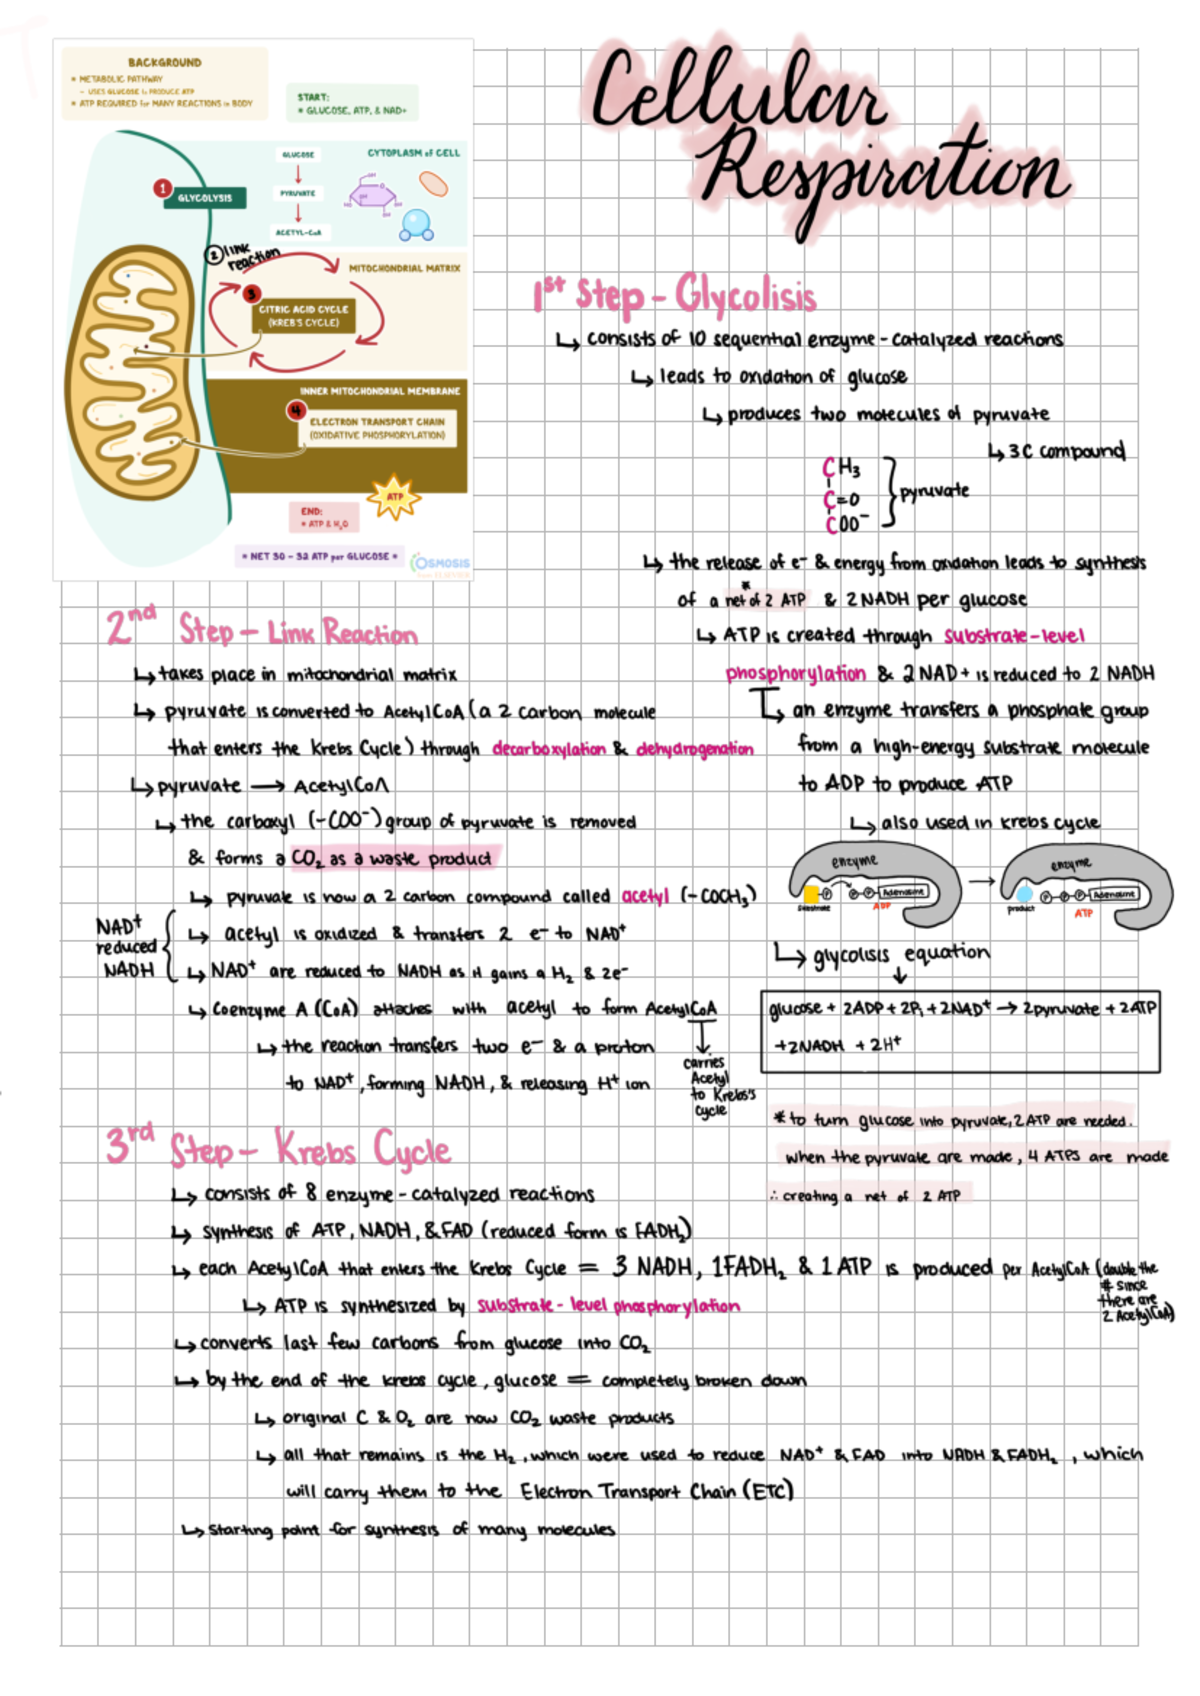 Cellular
Respiration
BACKGROUND
* METABOLIC PATHWAY
- USES GLUCOSE to PRODUCE ATP
* ATP REQUIRED for MANY REACTIONS in BODY
START:
* GLUCOSE, ATP, & NAD+
CYTOPLASM of CELL
GLUCOSE
PYRUVATE
ACETYL-CoA
1 GLYCOLYSIS
2 link
reaction
MITOCHONDRIAL MATRIX
3
CITRIC ACID CYCLE
(KREB'S CYCLE)
INNER MITOCHONDRIAL MEMBRANE
4
ELECTRON TRANSPORT CHAIN
(OXIDATIVE PHOSPHORYLATION)
ATP
END:
* ATP & H₂O
* NET 30 - 32 ATP per GLUCOSE *
OSMOSIS
from ELSEVIER
1st Step - Glycolisis
↳ consists of 10 sequential enzyme-catalyzed reactions
↳ leads to oxidation of glucose
↳ produces two molecules of pyruvate
↳ 3C compound
CH₃
C=O
COO⁻
pyruvate
↳ the release of e⁻ & energy from oxidation leads to synthesis
*
of a net of 2 ATP & 2NADH per glucose
↳ ATP is created through substrate-level
phosphorylation & 2 NAD+ is reduced to 2 NADH
↳ an enzyme transfers a phosphate group
from a high-energy substrate molecule
to ADP to produce ATP
↳ also used in krebs cycle
enzyme
substrate
P P P Adenosine
ADP
→
enzyme
product
P P P Adenosine
ATP
↳ glycolisis equation
↓
glucose + 2ADP + 2Pᵢ + 2NAD⁺ → 2pyruvate + 2ATP
+2NADH + 2H⁺
* to turn glucose into pyruvate, 2 ATP are needed.
when the pyruvate are made, 4 ATPS are made
∴ creating a net of 2 ATP
2nd Step - Link Reaction
↳ takes place in mitochondrial matrix
↳ pyruvate is converted to AcetylCoA (a 2 carbon molecule
that enters the Krebs Cycle) through decarboxylation & dehydrogenation
↳ pyruvate → AcetylCoA
↳ the carboxyl (-COO⁻) group of pyruvate is removed
& forms a CO₂ as a waste product
↳ pyruvate is now a 2 carbon compound called acetyl (-COCH₃)
NAD⁺
reduced
NADH
↳ acetyl is oxidized & transfers 2 e⁻ to NAD⁺
↳ NAD⁺ are reduced to NADH as it gains a H₂ & 2e⁻
↳ Coenzyme A (CoA) attaches with acetyl to form AcetylCoA
↳ the reaction transfers two e⁻ & a proton
to NAD⁺, forming NADH, & releasing H⁺ ion
carries
Acetyl
to Krebs's
Cycle
3rd Step - Krebs Cycle
↳ consists of 8 enzyme-catalyzed reactions
↳ synthesis of ATP, NADH, & FAD (reduced form is FADH₂)
↳ each AcetylCoA that enters the Krebs Cycle = 3 NADH, 1FADH₂ & 1 ATP is produced per AcetylCoA (double the
# since
there are
2 AcetylCoA)
↳ ATP is synthesized by substrate-level phosphorylation
↳ converts last few carbons from glucose into CO₂
↳ by the end of the krebs cycle, glucose = completely broken down
↳ original C & O₂ are now CO₂ waste products
↳ all that remains is the H₂, which were used to reduce NAD⁺ & FAD into NADH & FADH₂, which
will carry them to the Electron Transport Chain (ETC)
↳ starting point for synthesis of many molecules